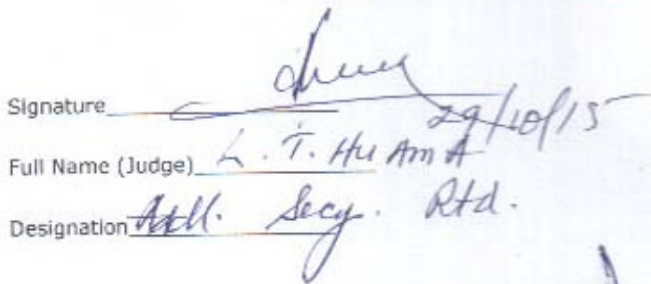 Signature 29/10/15
Full Name (Judge) L. T. HUAMA
Designation Addl. Secy. Rtd.